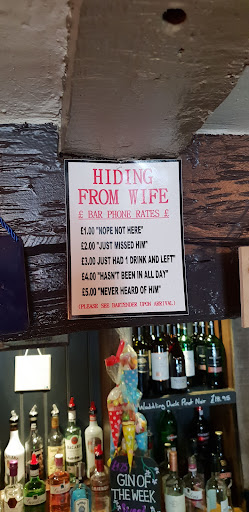 HIDING
FROM WIFE
£ BAR PHONE RATES £
£1.00 "NOPE NOT HERE"
£2.00 "JUST MISSED HIM"
£3.00 JUST HAD 1 DRINK AND LEFT"
£4.00 "HASN'T BEEN IN ALL DAY"
£5.00 "NEVER HEARD OF HIM"
(PLEASE SEE BARTENDER UPON ARRIVAL)
Waddling Duck Pinot Noir
GIN OF
THE WEEK